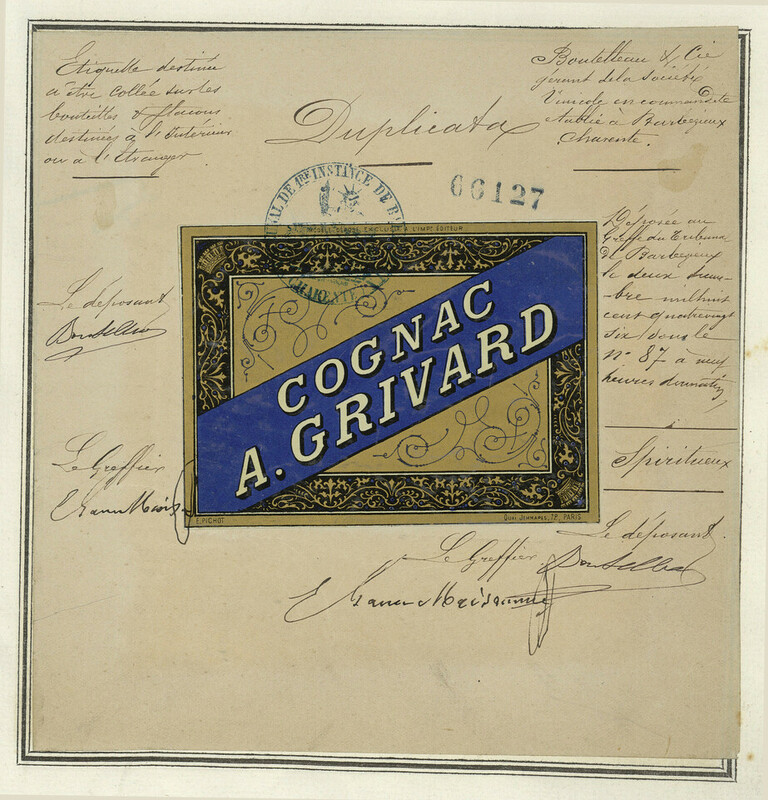 Etiquette destinée
à être collée sur les
bouteilles & flacons
destinées à l'Intérieur
ou à l'Etranger.
Duplicata
Boutelleau & Cie
gérant de la Société
Vinicole en commandite
établie à Barbezieux
Charente.
66127
TRIBUNAL DE 1ERE INSTANCE DE B
CHARENTE
MODELE DEPOSE EXCLUSIF A L'IMPR. EDITEUR
COGNAC
A. GRIVARD
E. PICHOT
QUAI JEMMAPES, 72, PARIS
Déposée au
Greffe du Tribunal
de Barbezieux
le deux
mil huit
cent quatre vingt
six sous le
n° 87 à neuf
heures du matin
Spiritueux
Le déposant
Boutelleau
Le Greffier
Le Greffier
Le déposant
Boutelleau